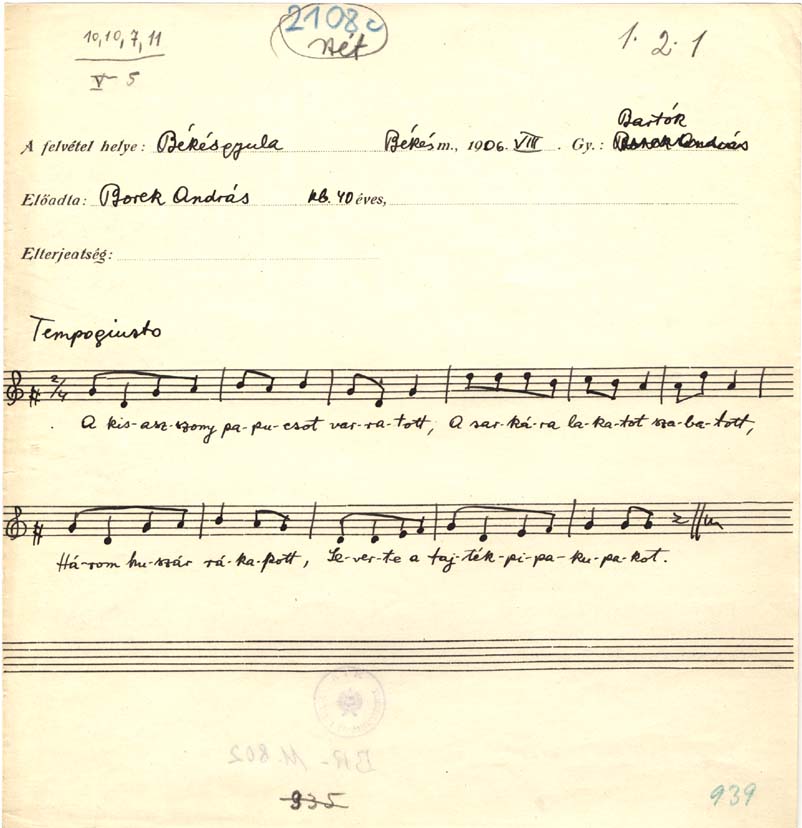 10,10,7,11
V 5
2108c
Nét
1. 2. 1
Bartók
A felvétel helye: Békésgyula Békés m., 1906. VIII. Gy.: Borek András
Előadta: Borek András kb. 40 éves,
Elterjeatség:
Tempo giusto
2/4
A kis-asz-szony pa-pu-csot var-ra-tott, A sar-ká-ra la-ka-tot sza-ba-tott,
Há-rom hu-szár rá-ka-pott, Le-ver-te a taj-ték-pi-pa-ku-pa-kot.
BR-M.802
935
939